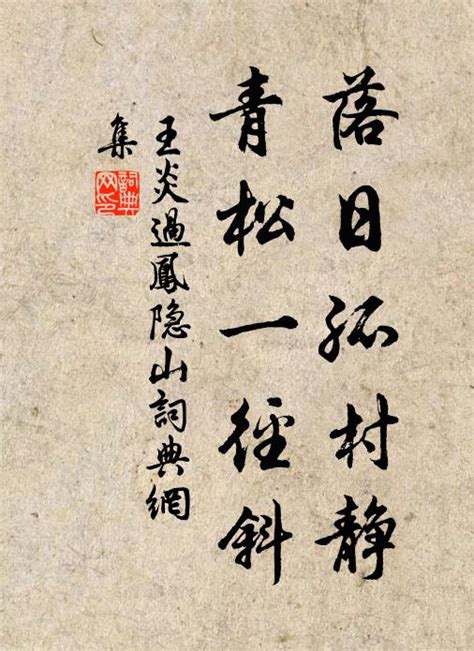 落日孤村静
青松一徑斜
王炎過鳳隐山詞典網
集
詞典網印